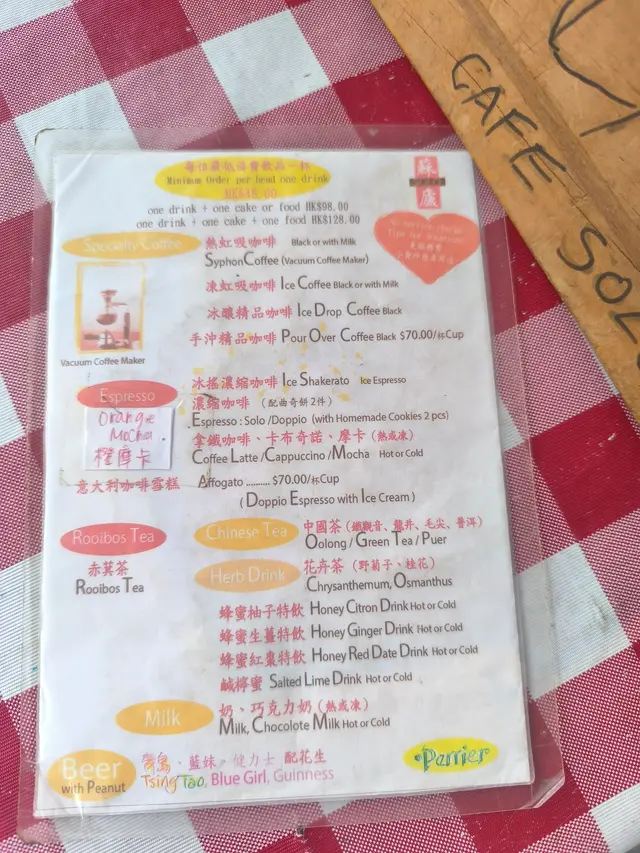 每位最低消費飲品一杯
Minimum Order per head one drink
HK$48.00
one drink + one cake or food HK$98.00
one drink + one cake + one food HK$128.00
蘇
蘆
CAFE
SOLO
Specialty Coffee
熱虹吸咖啡 Black or with Milk
Syphon Coffee (Vacuum Coffee Maker)
凍虹吸咖啡 Ice Coffee Black or with Milk
冰釀精品咖啡 Ice Drop Coffee Black
手沖精品咖啡 Pour Over Coffee Black $70.00/杯Cup
Vacuum Coffee Maker
冰搖濃縮咖啡 Ice Shakerato Ice Espresso
Espresso
濃縮咖啡 (配曲奇餅2件)
Espresso : Solo /Doppio (with Homemade Cookies 2 pcs)
Orange
Mocha
橙摩卡
拿鐵咖啡、卡布奇諾、摩卡 (熱或凍)
Coffee Latte /Cappuccino /Mocha Hot or Cold
意大利咖啡雪糕 Affogato .......... $70.00/杯Cup
( Doppio Espresso with Ice Cream )
Rooibos Tea
赤萁茶
Rooibos Tea
Chinese Tea
中國茶 (鐵觀音、龍井、毛尖、普洱)
Oolong / Green Tea / Puer
Herb Drink
花卉茶 (野菊子、桂花)
Chrysanthemum, Osmanthus
蜂蜜柚子特飲 Honey Citron Drink Hot or Cold
蜂蜜生薑特飲 Honey Ginger Drink Hot or Cold
蜂蜜紅棗特飲 Honey Red Date Drink Hot or Cold
鹹檸蜜 Salted Lime Drink Hot or Cold
Milk
奶、巧克力奶 (熱或凍)
Milk, Chocolate Milk Hot or Cold
Beer
with Peanut
青島、藍妹、健力士 配花生
Tsing Tao, Blue Girl, Guinness
Perrier